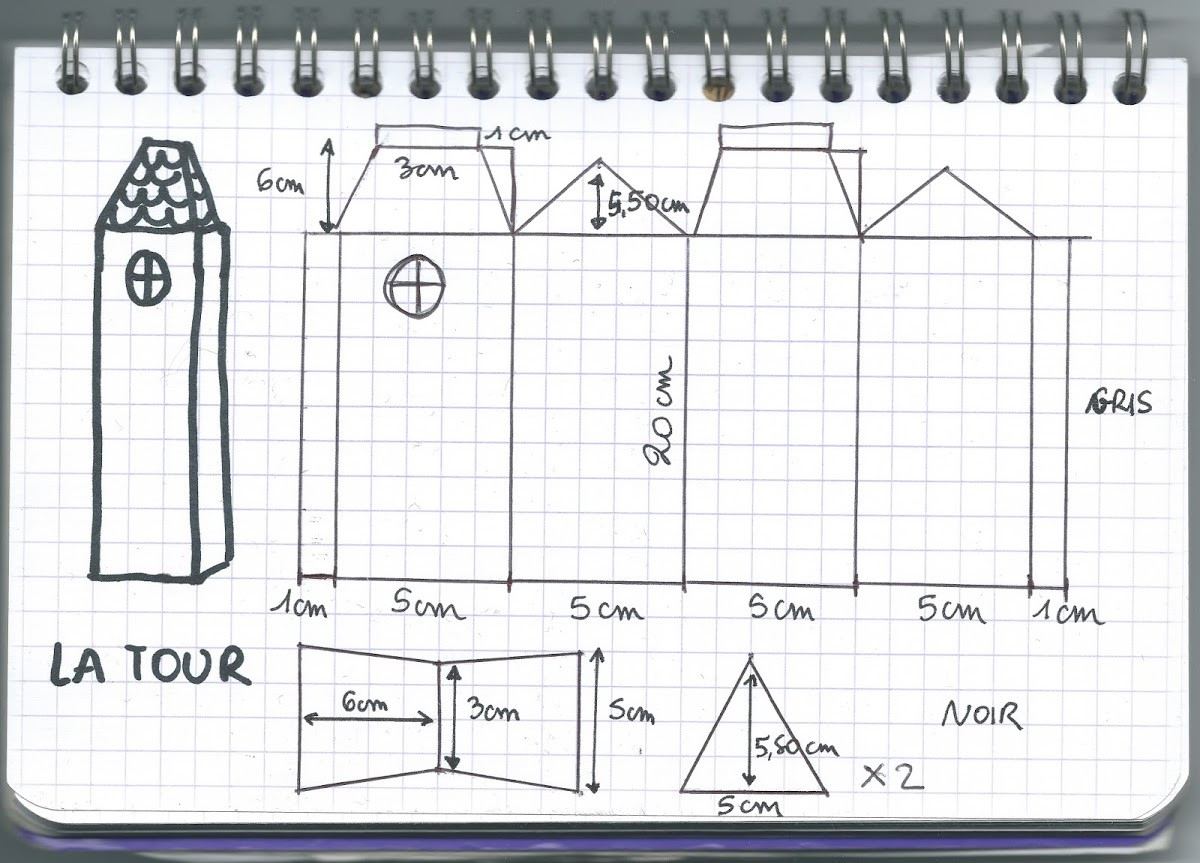 1cm
3cm
6cm
5,50cm
20cm
GRIS
1cm
5cm
5cm
5cm
5cm
1cm
LA TOUR
6cm
3cm
5cm
5,50cm
5cm
x2
NOIR